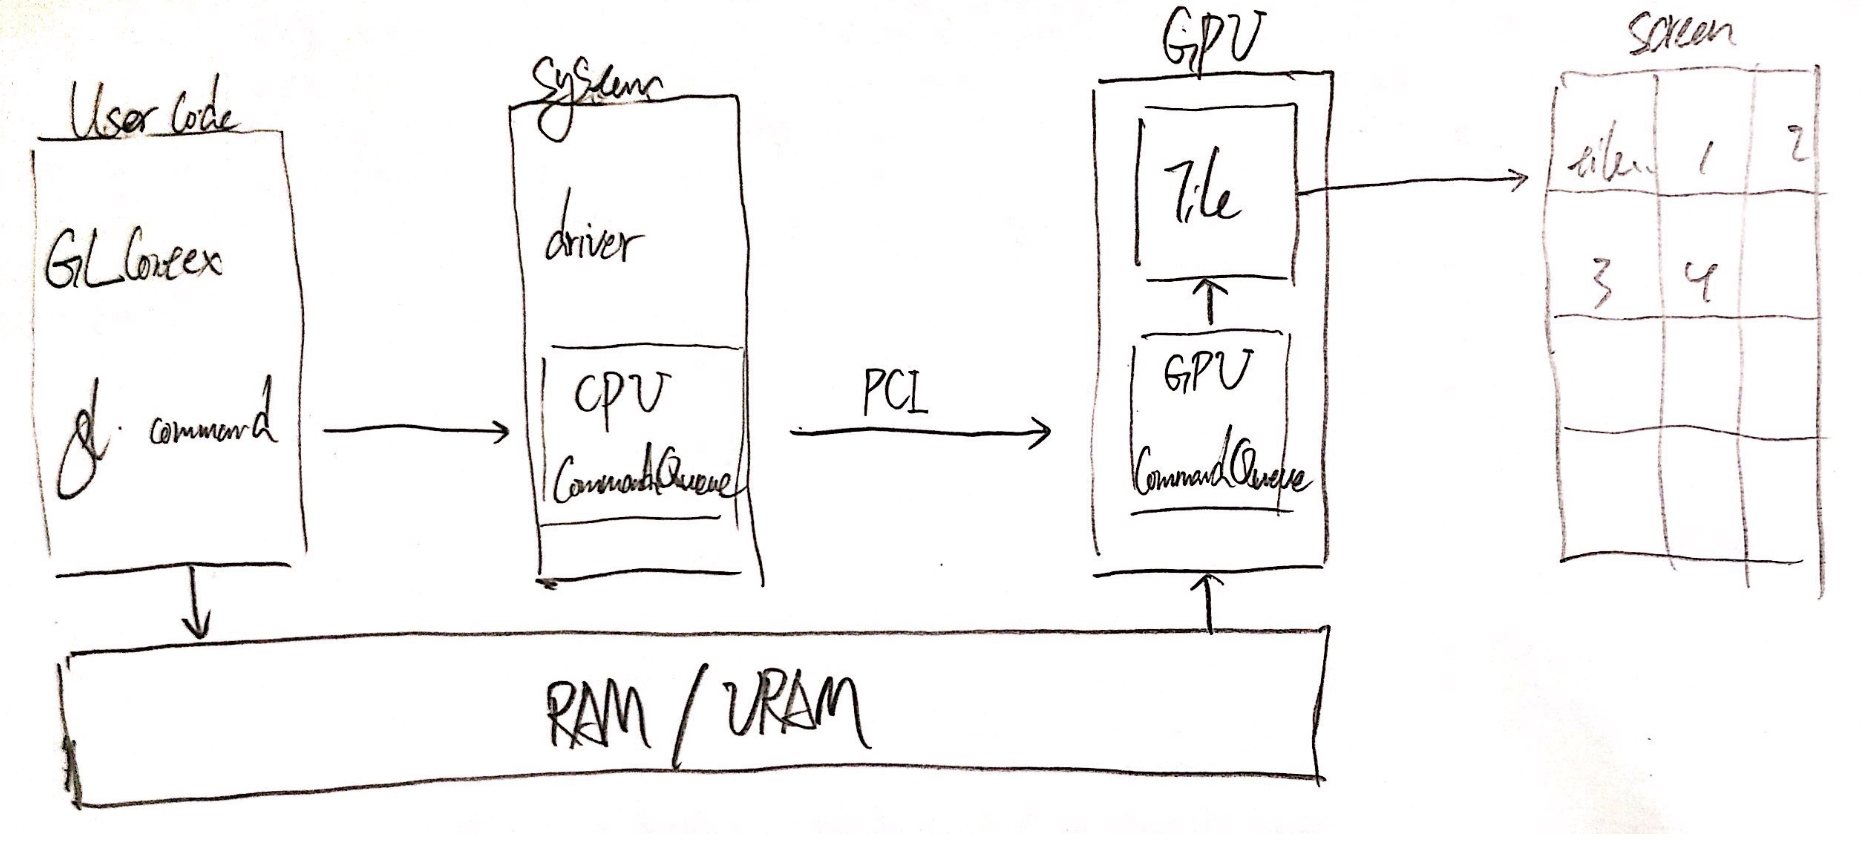 User Code
GL Contex
gl command
System
driver
CPU
CommandQueue
PCI
GPU
Tile
GPU
CommandQueue
Screen
1 2
3 4
RAM / VRAM